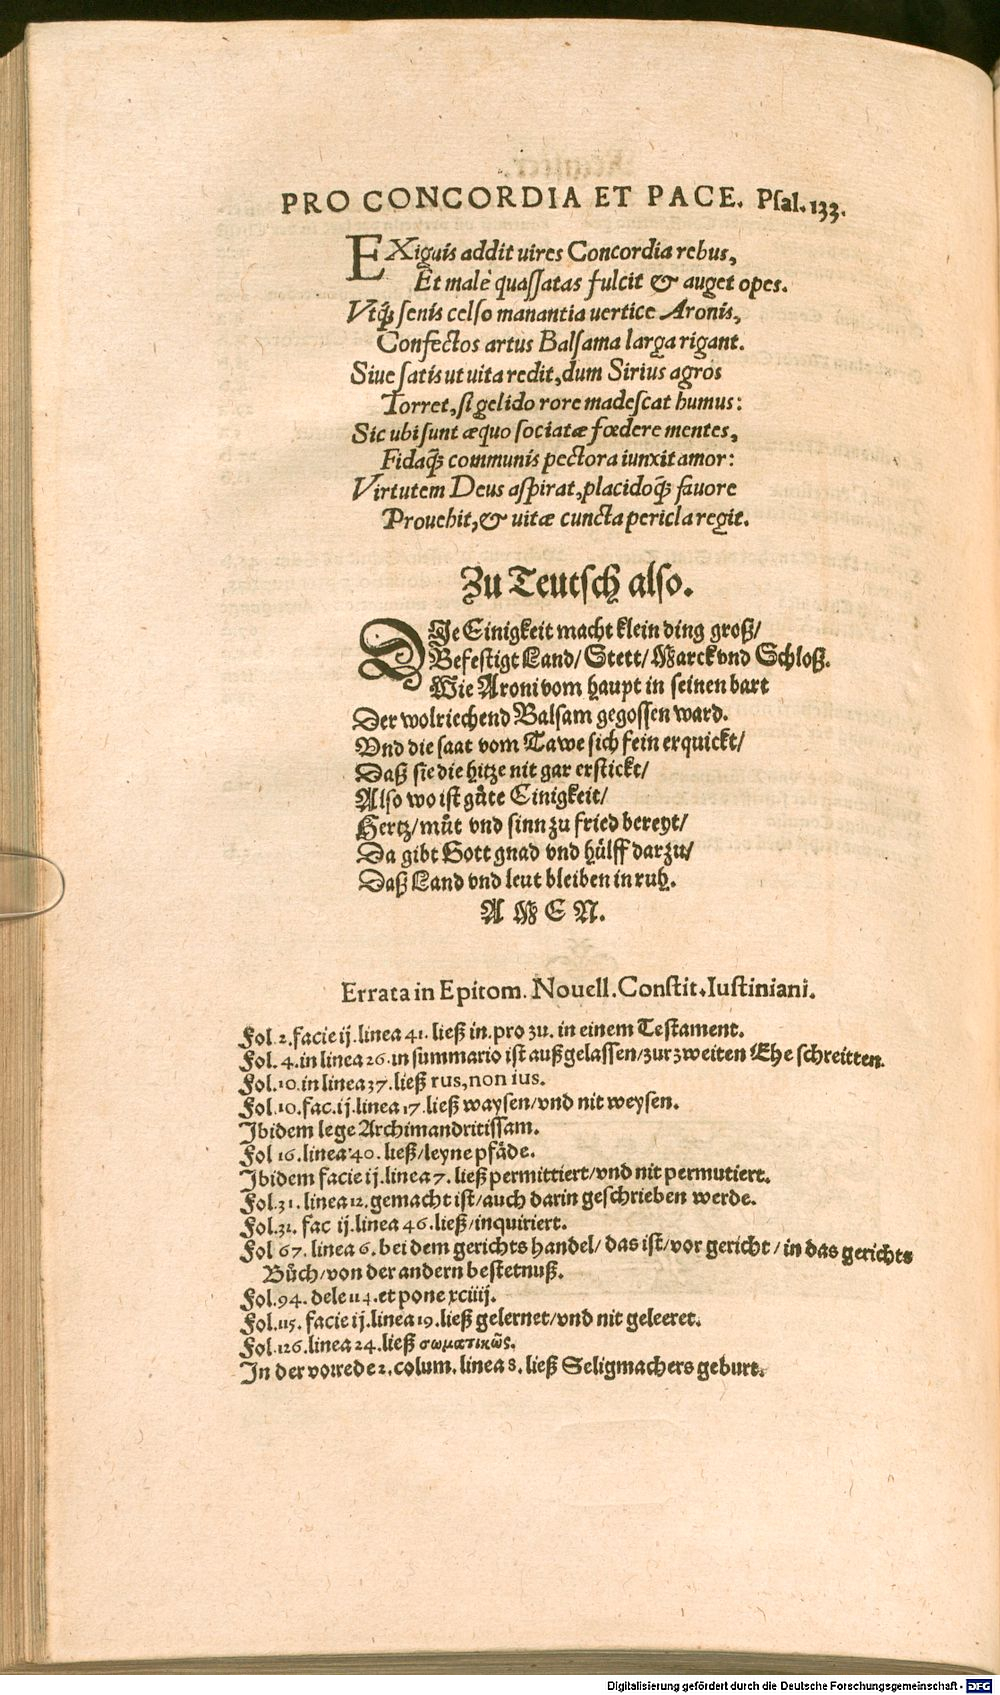 PRO CONCORDIA ET PACE. Pſal. 133.
EXiguis addit uires Concordia rebus,
Et malè quaſſatas fulcit & auget opes.
Vtq́ꝫ ſenis celſo manantia uertice Aronis,
Confectos artus Balſama larga rigant.
Siue ſatis ut uita redit, dum Sirius agros
Torret, ſi gelido rore madeſcat humus:
Sic ubi ſunt æquo ſociatæ fœdere mentes,
Fidaq́ꝫ communis pectora iunxit amor:
Virtutem Deus aſpirat, placidoq́ꝫ fauore
Prouehit, & uitæ cuncta pericla regit.
Zu Teutſch alſo.
DJe Einigkeit macht klein ding groß/
Befeſtigt Land/ Stett/ Marck vnd Schloß.
Wie Aroni vom haupt in ſeinen bart
Der wolriechend Balſam gegoſſen ward.
Vnd die ſaat vom Tawe ſich fein erquickt/
Daß ſie die hitze nit gar erſtickt/
Alſo wo iſt gůte Einigkeit/
Hertz/ můt vnd ſinn zu fried bereyt/
Da gibt Gott gnad vnd hülff darzu/
Daß Land vnd leut bleiben in ruh.
A M E N.
Errata in Epitom. Nouell. Conſtit. Iuſtiniani.
Fol. 2. facie ij. linea 41. ließ in. pro zu. in einem Teſtament.
Fol. 4. in linea 26. in ſummario iſt außgelaſſen/ zur zweiten Ehe ſchreitten.
Fol. 10. in linea 37. ließ rus, non ius.
Fol. 10. fac. ij. linea 17. ließ wayſen/ vnd nit weyſen.
Jbidem lege Archimandritiſſam.
Fol 16. linea 40. ließ/ leyne pfäde.
Jbidem facie ij. linea 7. ließ permittiert/ vnd nit permutiert.
Fol. 31. linea 12. gemacht iſt/ auch darin geſchrieben werde.
Fol. 32. fac ij. linea 46. ließ/ inquiriert.
Fol 67. linea 6. bei dem gerichts handel/ das iſt/ vor gericht/ in das gerichts
Bůch/ von der andern beſtetnuß.
Fol. 94. dele 114. et pone xciiij.
Fol. 115. facie ij. linea 19. ließ gelernet/ vnd nit geleeret.
Fol. 126. linea 24. ließ σωματικῶς.
In der vorrede 2. colum. linea 8. ließ Seligmachers geburt.
Digitalisierung gefördert durch die Deutsche Forschungsgemeinschaft - DFG